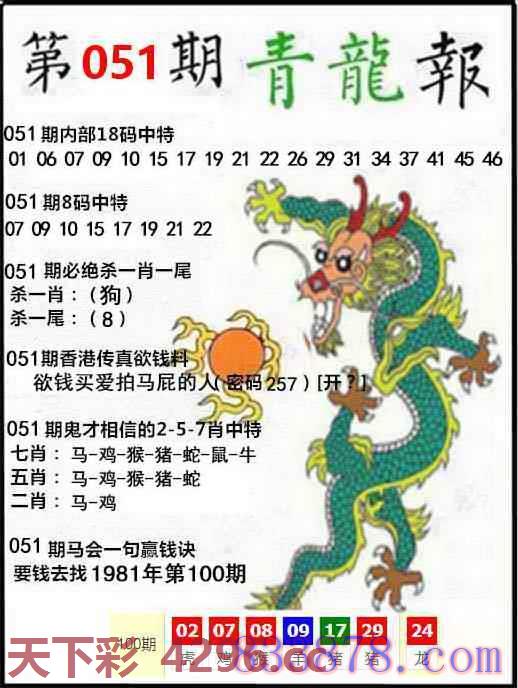 第051期青龍報
051期内部18码中特
01 06 07 09 10 15 17 19 21 22 26 29 31 34 37 41 45 46
051期8码中特
07 09 10 15 17 19 21 22
051期必绝杀一肖一尾
杀一肖：（狗）
杀一尾：（8）
051期香港传真欲钱料
欲钱买爱拍马屁的人(密码257)[开?]
051期鬼才相信的2-5-7肖中特
七肖：马-鸡-猴-猪-蛇-鼠-牛
五肖：马-鸡-猴-猪-蛇
二肖：马-鸡
051期马会一句赢钱诀
要钱去找1981年第100期
100期 02 07 08 09 17 29 24
虎 鸡 猴 羊 猪 猪 龙
天下彩 4296.cc
838878.com